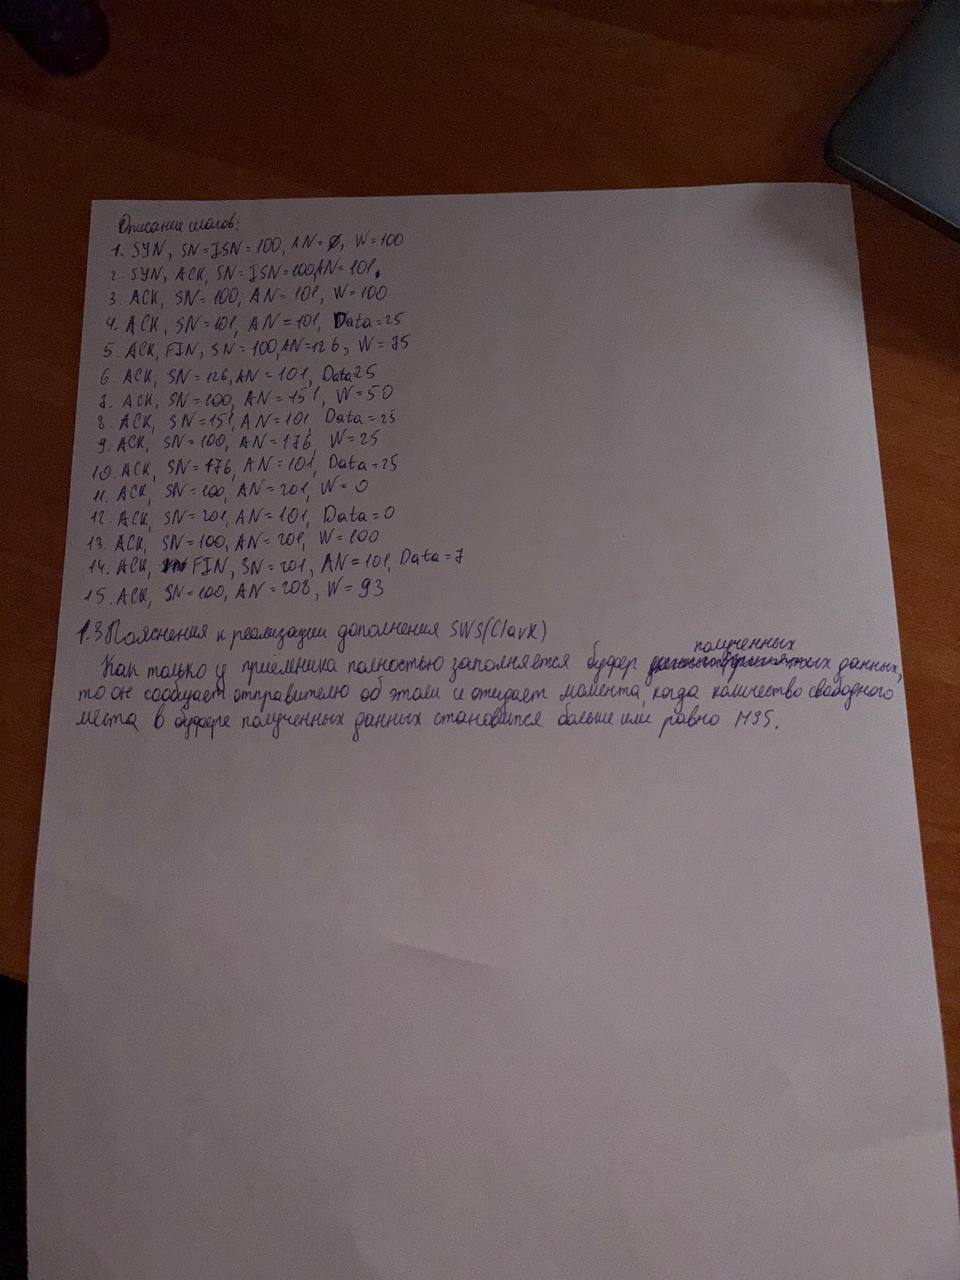 Описание шагов:
1. SYN, SN=ISN=100, AN=0, W=100
2. SYN, ACK, SN=ISN=100, AN=101,
3. ACK, SN=100, AN=101, W=100
4. ACK, SN=101, AN=101, Data=25
5. ACK, FIN, SN=100, AN=126, W=75
6. ACK, SN=126, AN=101, Data=25
7. ACK, SN=100, AN=151, W=50
8. ACK, SN=151, AN=101, Data=25
9. ACK, SN=100, AN=176, W=25
10. ACK, SN=176, AN=101, Data=25
11. ACK, SN=100, AN=201, W=0
12. ACK, SN=201, AN=101, Data=0
13. ACK, SN=100, AN=201, W=100
14. ACK, FIN, SN=201, AN=101, Data=7
15. ACK, SN=100, AN=208, W=93
1.3 Пояснения к реализации дополнения SWS(Clark)
Как только у приёмника полностью заполняется буфер полученных данных,
то он сообщает отправителю об этом и ожидает момента, когда количество свободного
места в буфере полученных данных становится больше или равно MSS.